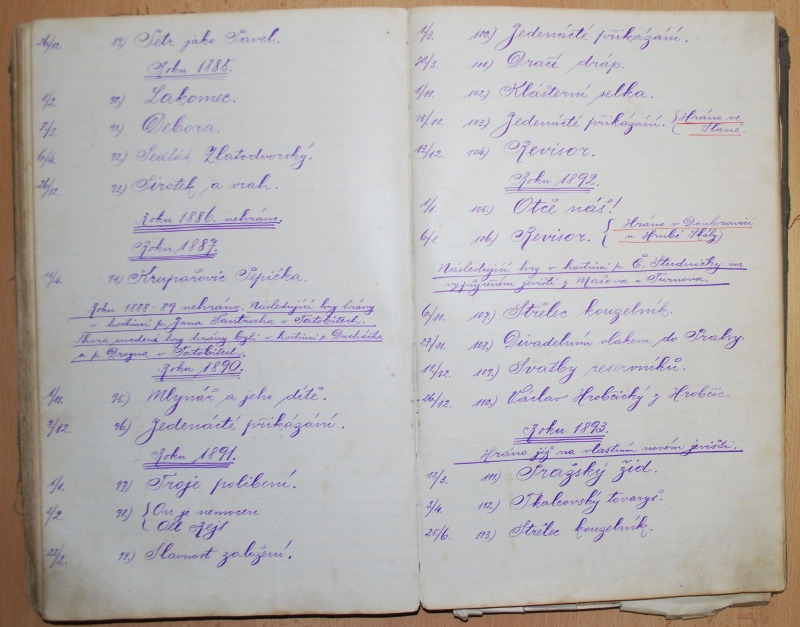 26/12. 89.) Petr jako Pavel.
Roku 1885.
1/2. 90.) Lakomec.
8/3. 91.) Debora.
6/4. 92.) Sedlák Zlatodvorský.
26/12. 93.) Sirotek a vrah.
Roku 1886. nehráno.
Roku 1887.
/4. 94.) Krupařovic Pepička.
Roku 1888-89 nehráno. Následující hry hrány
v hostinci p. Jana Šantrocha v Tatobitech.
Shora uvedené hry hrány byly v hostinci p. Ducháčka
a p. Drogna v Tatobitech.
Roku 1890.
/11. 95.) Mlynář a jeho dítě.
7/12. 96.) Jedenácté přikázání.
Roku 1891.
1/1. 97.) Troje políbení.
2/2. 98.) On je nemocen
Ode Zejs
22/2. 99.) Slavnost založení.
/3. 100.) Jedenácté přikázání.
30/3. 101.) Dračí dráp.
1/11. 102.) Klášterní selka.
15/11. 103.) Jedenácté přikázání. Hráno ve
Slané.
13/12. 104.) Revisor.
Roku 1892.
1/1. 105.) Otče náš!
6/1. 106.) Revisor. Hráno v Doubravici
u Hrubé Skály
Následující hry v hostinci p. Č. Studničky na
vypůjčeném jevišti z Mašova u Turnova.
6/11. 107.) Střelec kouzelník.
27/11. 108.) Divadelním vlakem do Prahy.
18/12. 109.) Svatby reservníků.
26/12. 110.) Václav Hrobčický z Hrobčic.
Roku 1893.
Hráno již na vlastním novém jevišti.
12/3. 111.) Pražský žid.
3/4. 112.) Tkalcovský tovaryš.
25/6. 113.) Střelec kouzelník.